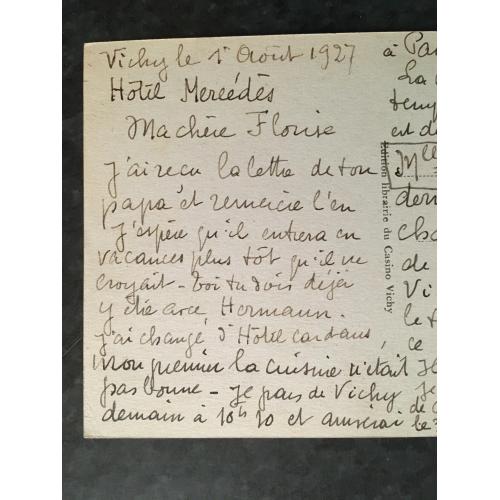 Vichy le 1r Août 1927
Hôtel Mercédès
Ma chère Florise
J'ai reçu la lettre de ton
papa et remercie l'en
J'espère qu'il entrera en
vacances plus tôt qu'il ne
croyait - toi tu dois déjà
y être avec Hermann.
J'ai changé d'Hôtel car dans
mon premier la cuisine n'était
pas bonne - Je pars de Vichy
demain à 10h 10 et arriverai
à Pa
La
temp
est de
Mlle
dern
cha
de
Vi
le t
ce
Je
Je
de
le
Edition librairie du Casino Vichy